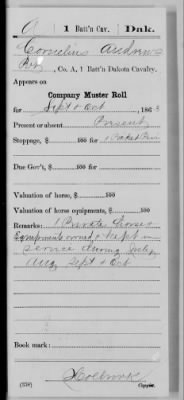 A | 1 Batt'n Cav. | Dak.
Cornelius Andrews
Pvt, Co. A, 1 Batt'n Dakota Cavalry.
Appears on
Company Muster Roll
for Sept & Oct, 1863
Present or absent Present
Stoppage, $ 100 for 1
Due Gov't, $ 100 for
Valuation of horse, $ 100
Valuation of horse equipments, $ 100
Remarks: 1 Private horse &
Equipments owned & kept in
service during July,
Aug Sept & Oct
Book mark:
Holbrook
(358) Copyist.